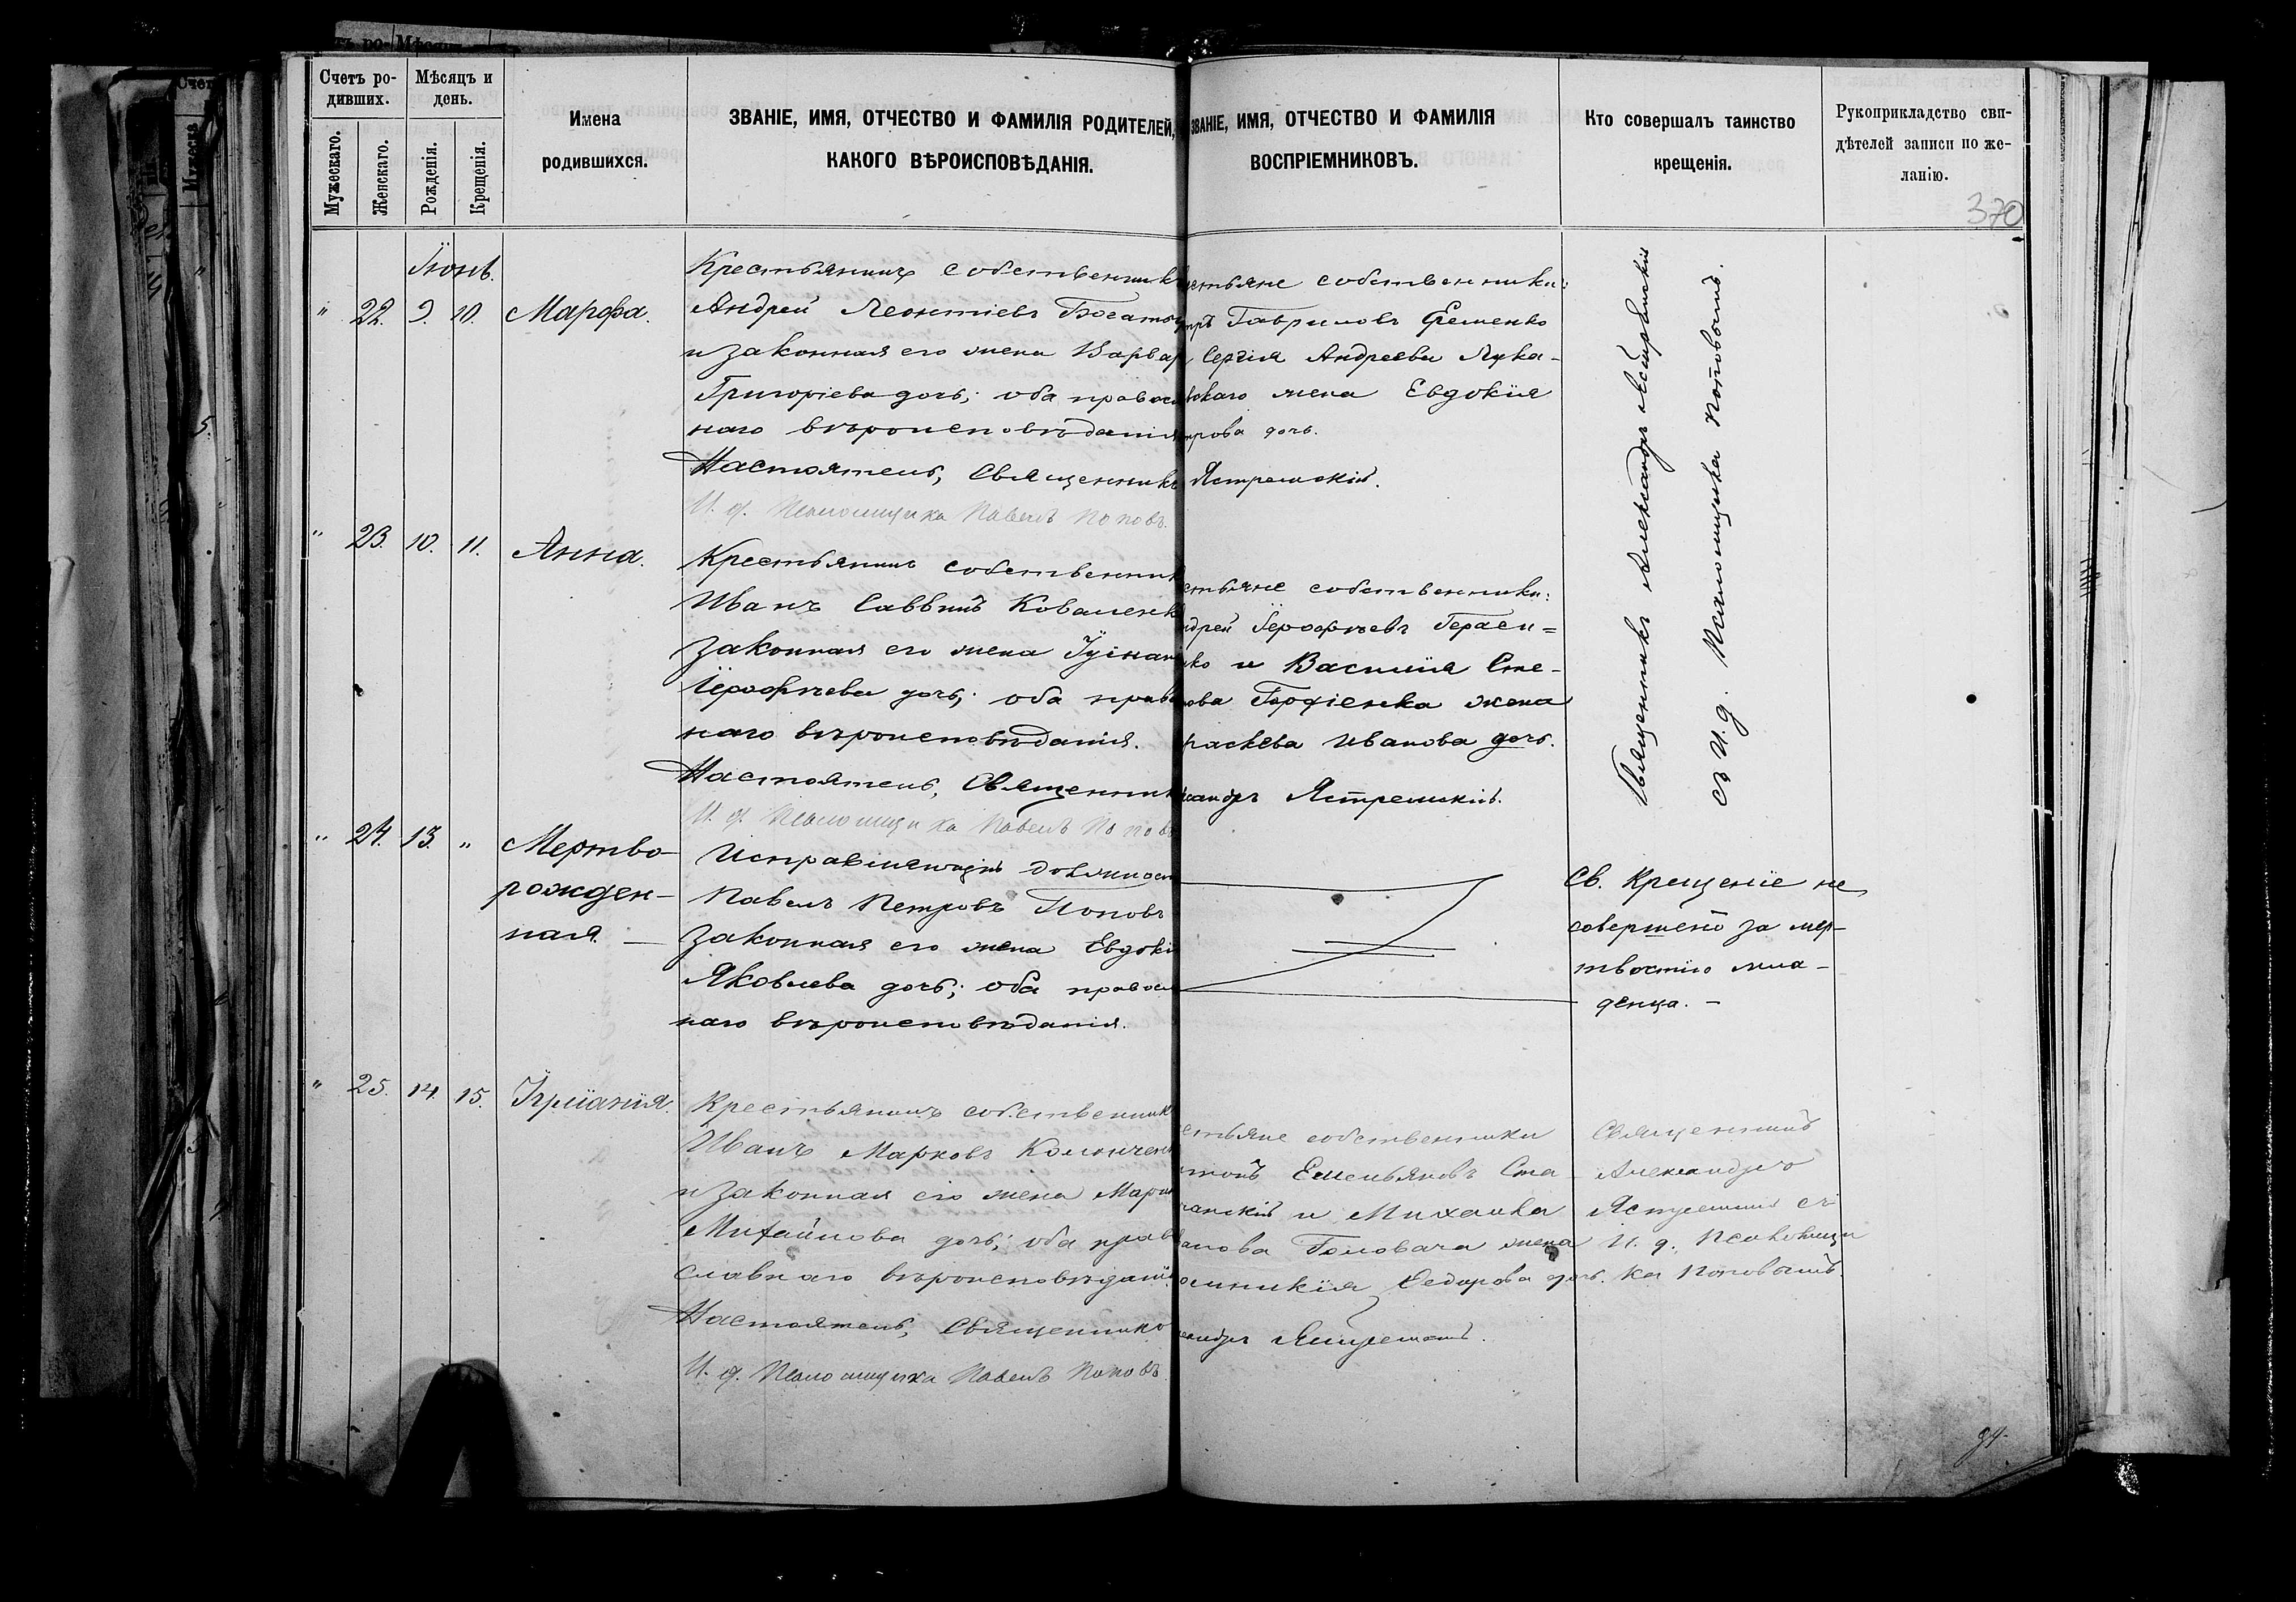 Счетъ ро-
дившихъ.
Мѣсяцъ и
день.
Мужескаго.
Женскаго.
Рожденія.
Крещенія.
Имена
родившихся.
ЗВАНІЕ, ИМЯ, ОТЧЕСТВО И ФАМИЛІЯ РОДИТЕЛЕЙ,
КАКОГО ВѢРОИСПОВѢДАНІЯ.
ЗВАНІЕ, ИМЯ, ОТЧЕСТВО И ФАМИЛІЯ
ВОСПРІЕМНИКОВЪ.
Кто совершалъ таинство
крещенія.
Рукоприкладство сви-
дѣтелей записи по же-
ланію.
370
Іюнь.
" 22. 9. 10. Марѳа.
Крестьянинъ собственник
Андрей Леонтіевъ
и законная его жена Варвар
Григоріева дочь; оба правосл
наго вѣроисповѣданія
Настоятель, Священникъ
И. д. Псаломщика Павелъ Поповъ.
стьяне собственники:
тръ Гавриловъ Фоменко
Сергія Андреева Лука-
вскаго жена Евдокія
трова дочь.
Ястремскій.
Священникъ Александръ Ястремскій
съ И. д. Псаломщика Поповымъ.
" 23. 10. 11. Анна.
Крестьянинъ собственник
Иванъ Саввинъ Коваленк
законная его жена Іуліан
Іероѳѣева дочь; оба прав
наго вѣроисповѣданія.
Настоятель, Священник
И. д. Псаломщика Павелъ Попов
стьяне собственники:
ндрей Іероѳѣевъ Гераси=
нко и Василія Сте-
нова Горѳіенка жена
раскева Иванова дочь.
ксандръ Ястремскій.
" 24. 13. " Мертво-
рожден-
ная. —
Исправляющій должност
Павелъ Петровъ Поповъ
законная его жена Евдокі
Яковлева дочь; оба правосл
наго вѣроисповѣданія.
Св. Крещеніе не
совершено за мер-
твостію мла-
денца. —
" 25. 14. 15. Ірміанія.
Крестьянинъ собственник
Иванъ Марковъ
и законная его жена Мари
Михайлова дочь; оба прав
славнаго вѣроисповѣданія
Настоятель, Священникъ
И. д. Псаломщика Павелъ Поповъ.
стьяне собственники
Емельяновъ Ста-
и Михаила
Головача жена
Ѳедорова дочь.
ксандръ Ястремскій.
Священникъ
Александръ
Ястремскій съ
И. д. Псаломщи
ка Поповымъ.